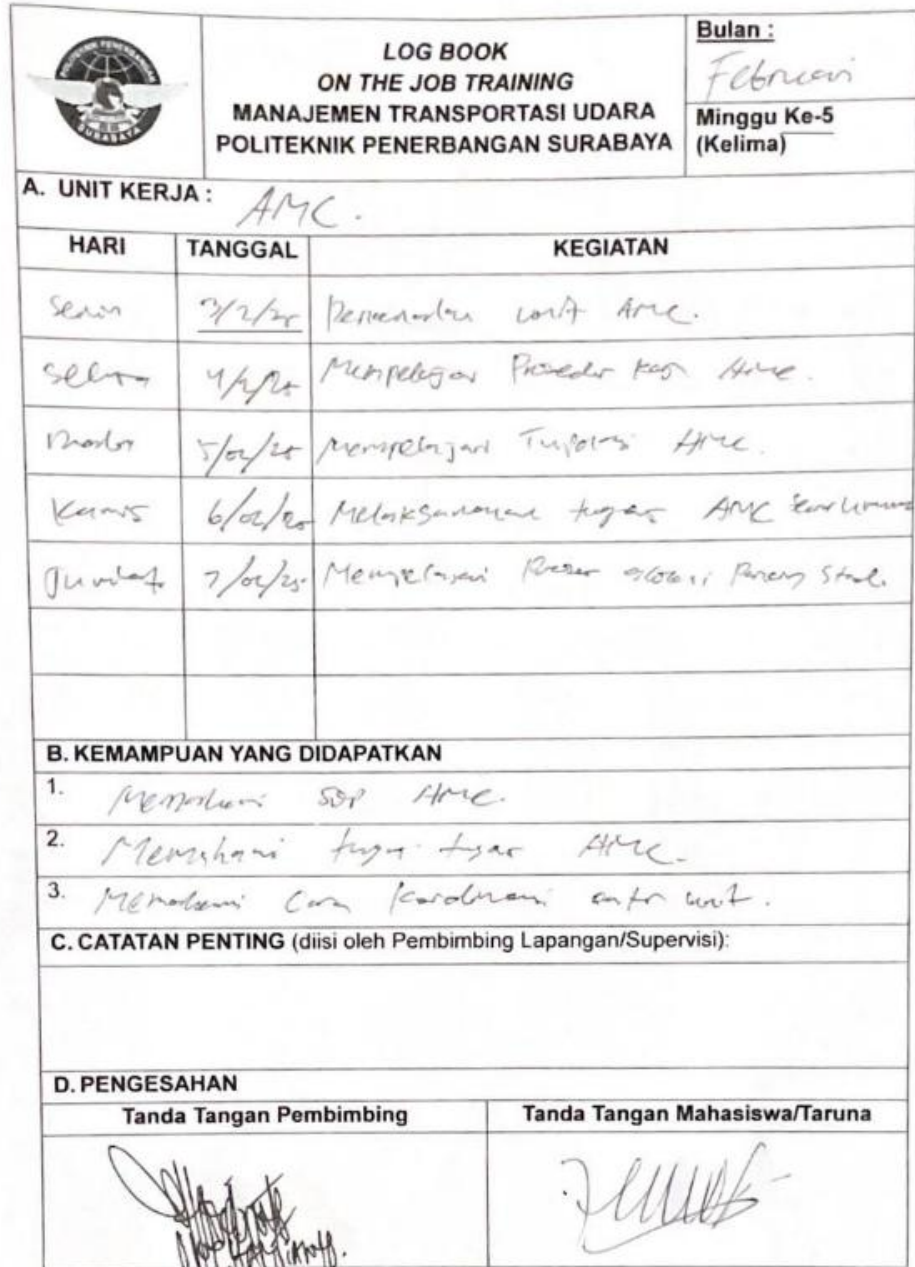 POLITEKNIK PENERBANGAN
SURABAYA
LOG BOOK
ON THE JOB TRAINING
MANAJEMEN TRANSPORTASI UDARA
POLITEKNIK PENERBANGAN SURABAYA
Bulan :
Februari
Minggu Ke-5
(Kelima)
A. UNIT KERJA : AMC.
HARI TANGGAL KEGIATAN
Senin 3/2/25 unit AMC.
Selasa 4/2/25 Mempelajari Prosedur AMC.
5/02/25 Mempelajari Tupoksi AMC.
Kamis 6/02/25 Melaksanakan tugas AMC
Jum'at 7/02/25
B. KEMAMPUAN YANG DIDAPATKAN
1. Memahami SOP AMC.
2. Memahami tugas-tugas AMC.
3. Memahami Cara Koordinasi antar unit.
C. CATATAN PENTING (diisi oleh Pembimbing Lapangan/Supervisi):
D. PENGESAHAN
Tanda Tangan Pembimbing Tanda Tangan Mahasiswa/Taruna